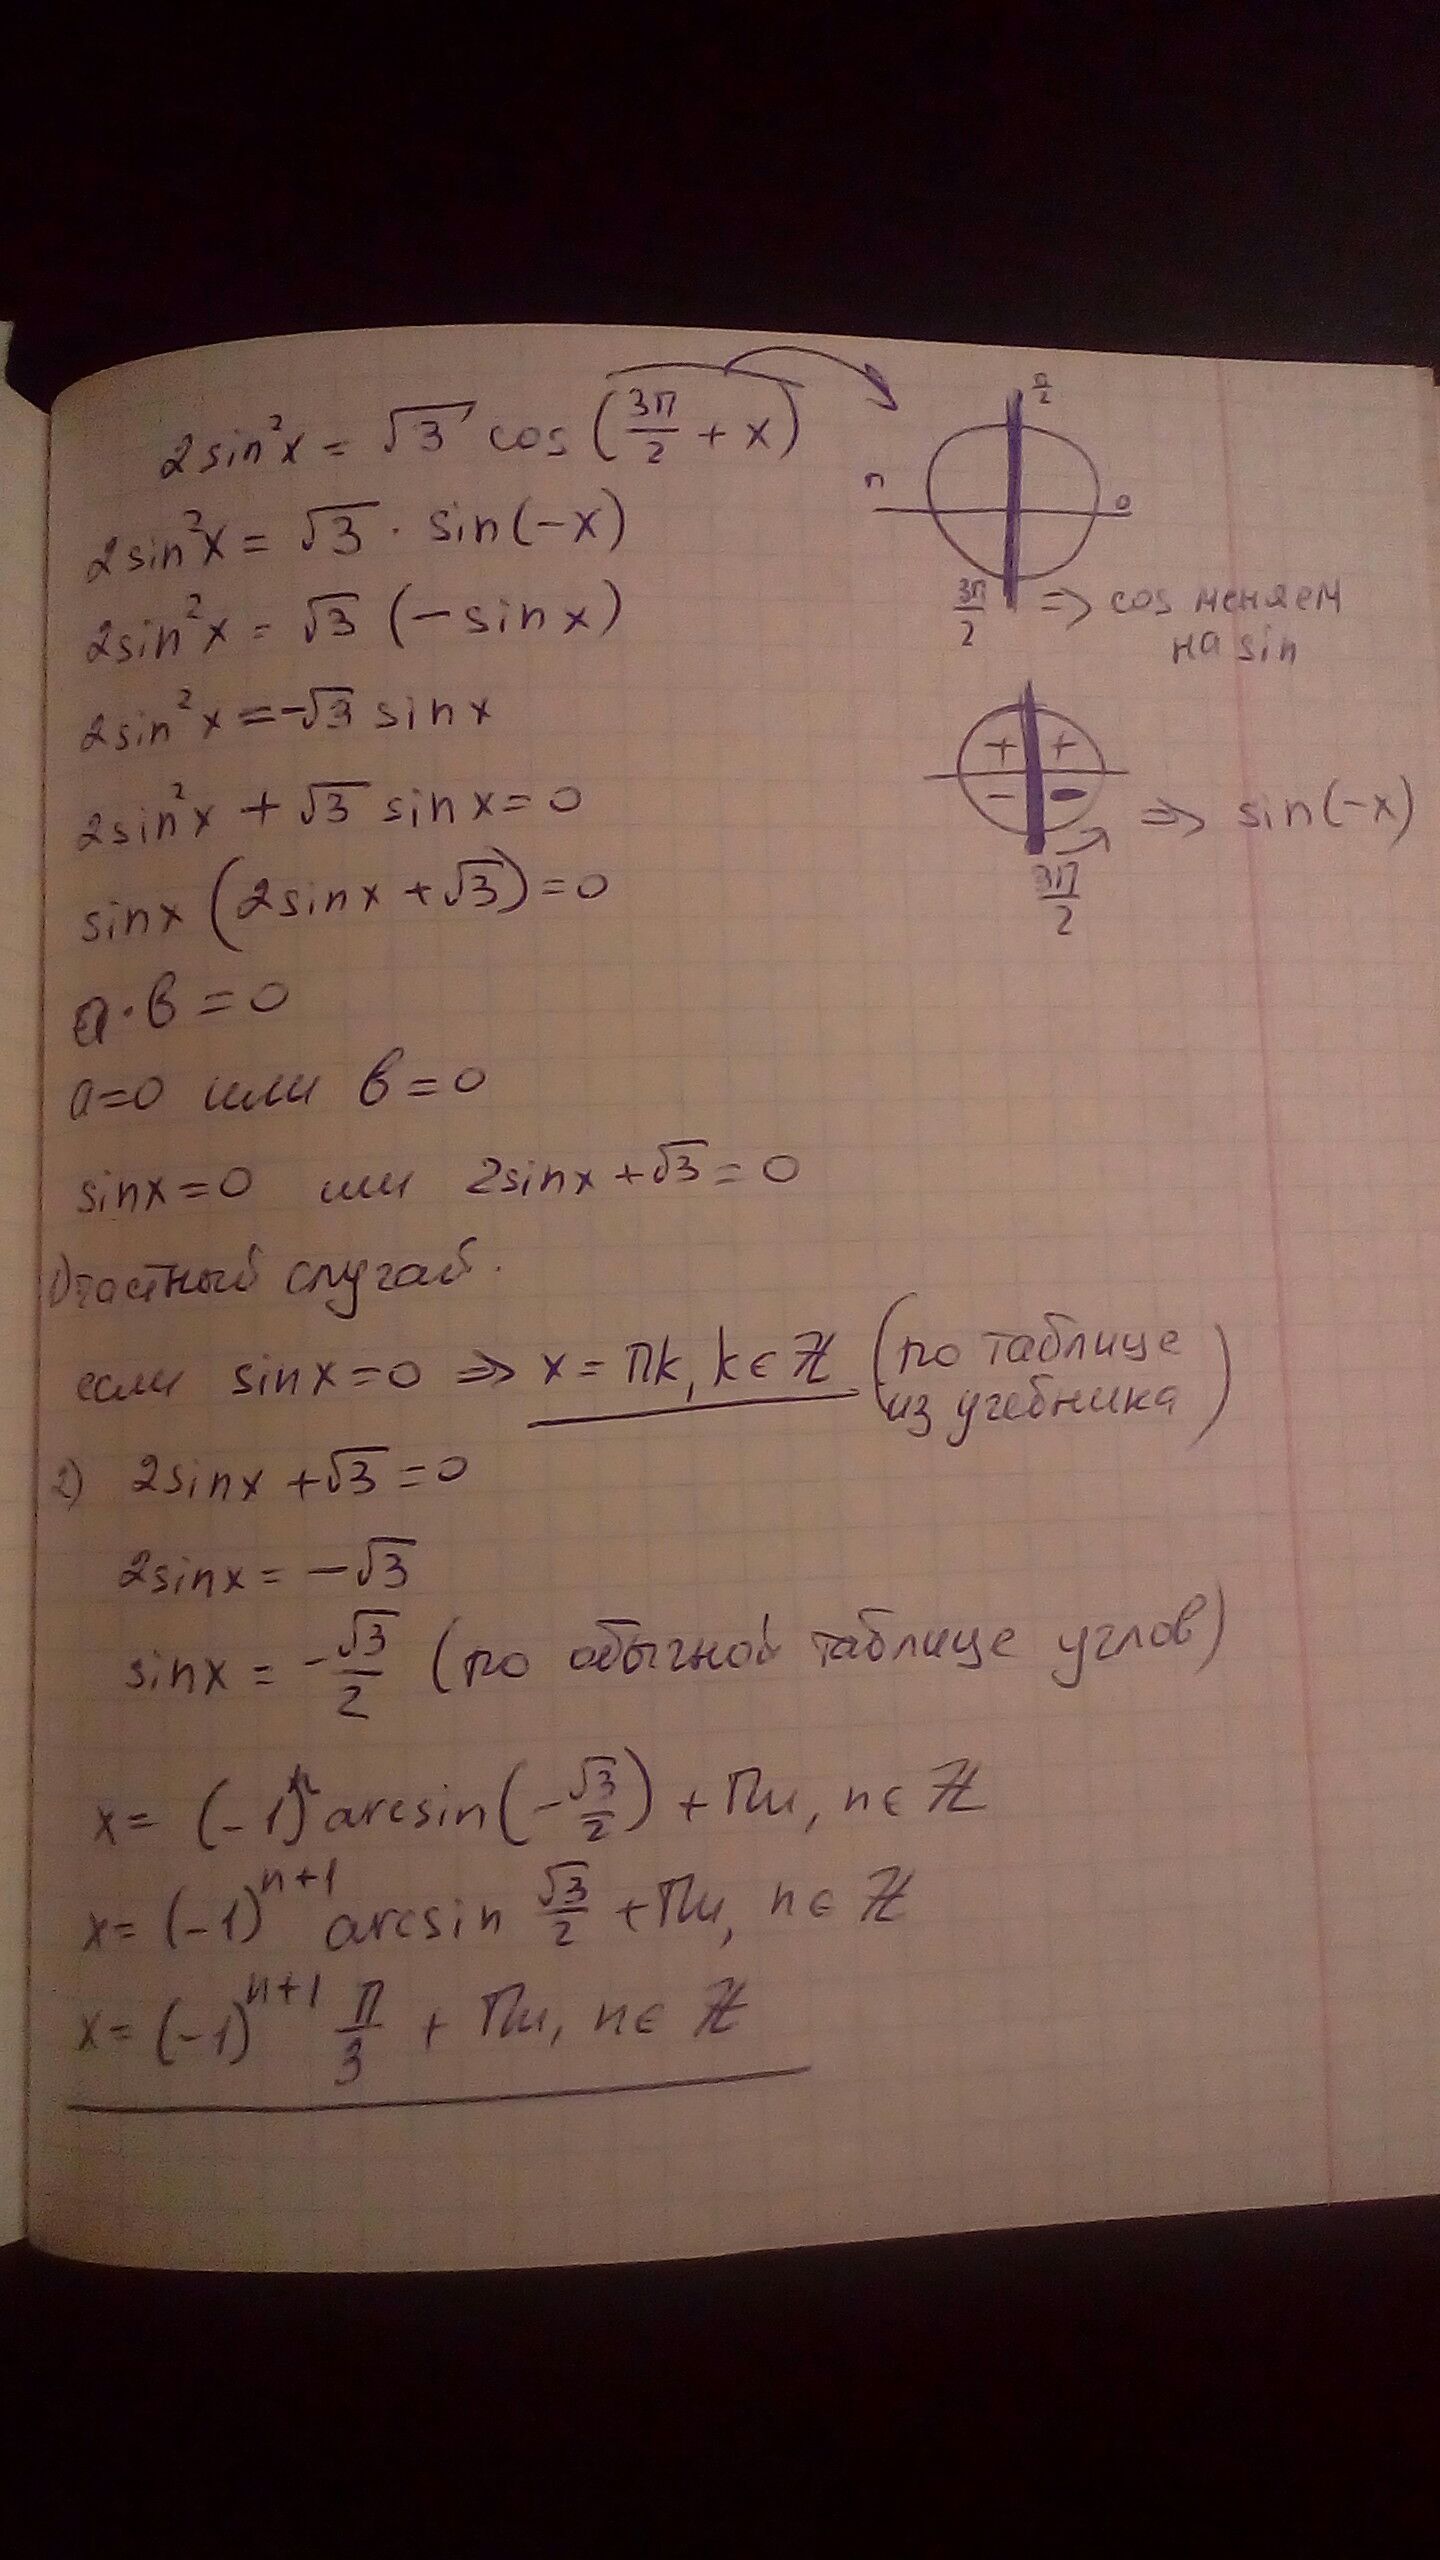 2sin²x = √3 cos(3π/2 + x)
2sin²x = √3 · sin(-x)
2sin²x = √3 (-sinx)
2sin²x = -√3 sinx
2sin²x + √3 sinx = 0
sinx (2sinx + √3) = 0
a · b = 0
a = 0 или b = 0
sinx = 0 или 2sinx + √3 = 0
1) частный случай.
если sinx = 0 => x = πk, k ∈ Z (по таблице
из учебника)
2) 2sinx + √3 = 0
2sinx = -√3
sinx = -√3/2 (по обычной таблице углов)
x = (-1)ⁿ arcsin(-√3/2) + πn, n ∈ Z
x = (-1)ⁿ⁺¹ arcsin √3/2 + πn, n ∈ Z
x = (-1)ⁿ⁺¹ π/3 + πn, n ∈ Z
π/2
π 0
3π/2 => cos меняем
на sin
+ +
- - => sin(-x)
3π/2